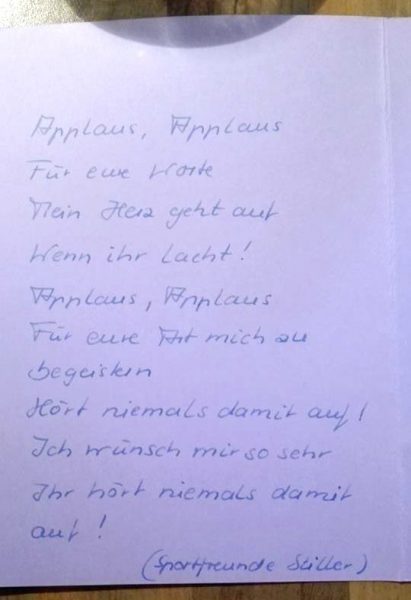 Applaus, Applaus
Für eure Worte
Mein Herz geht auf
Wenn ihr lacht!
Applaus, Applaus
Für eure Art mich zu
begeistern
Hört niemals damit auf!
Ich wünsch mir so sehr
Ihr hört niemals damit
auf!
(Sportfreunde Stiller)